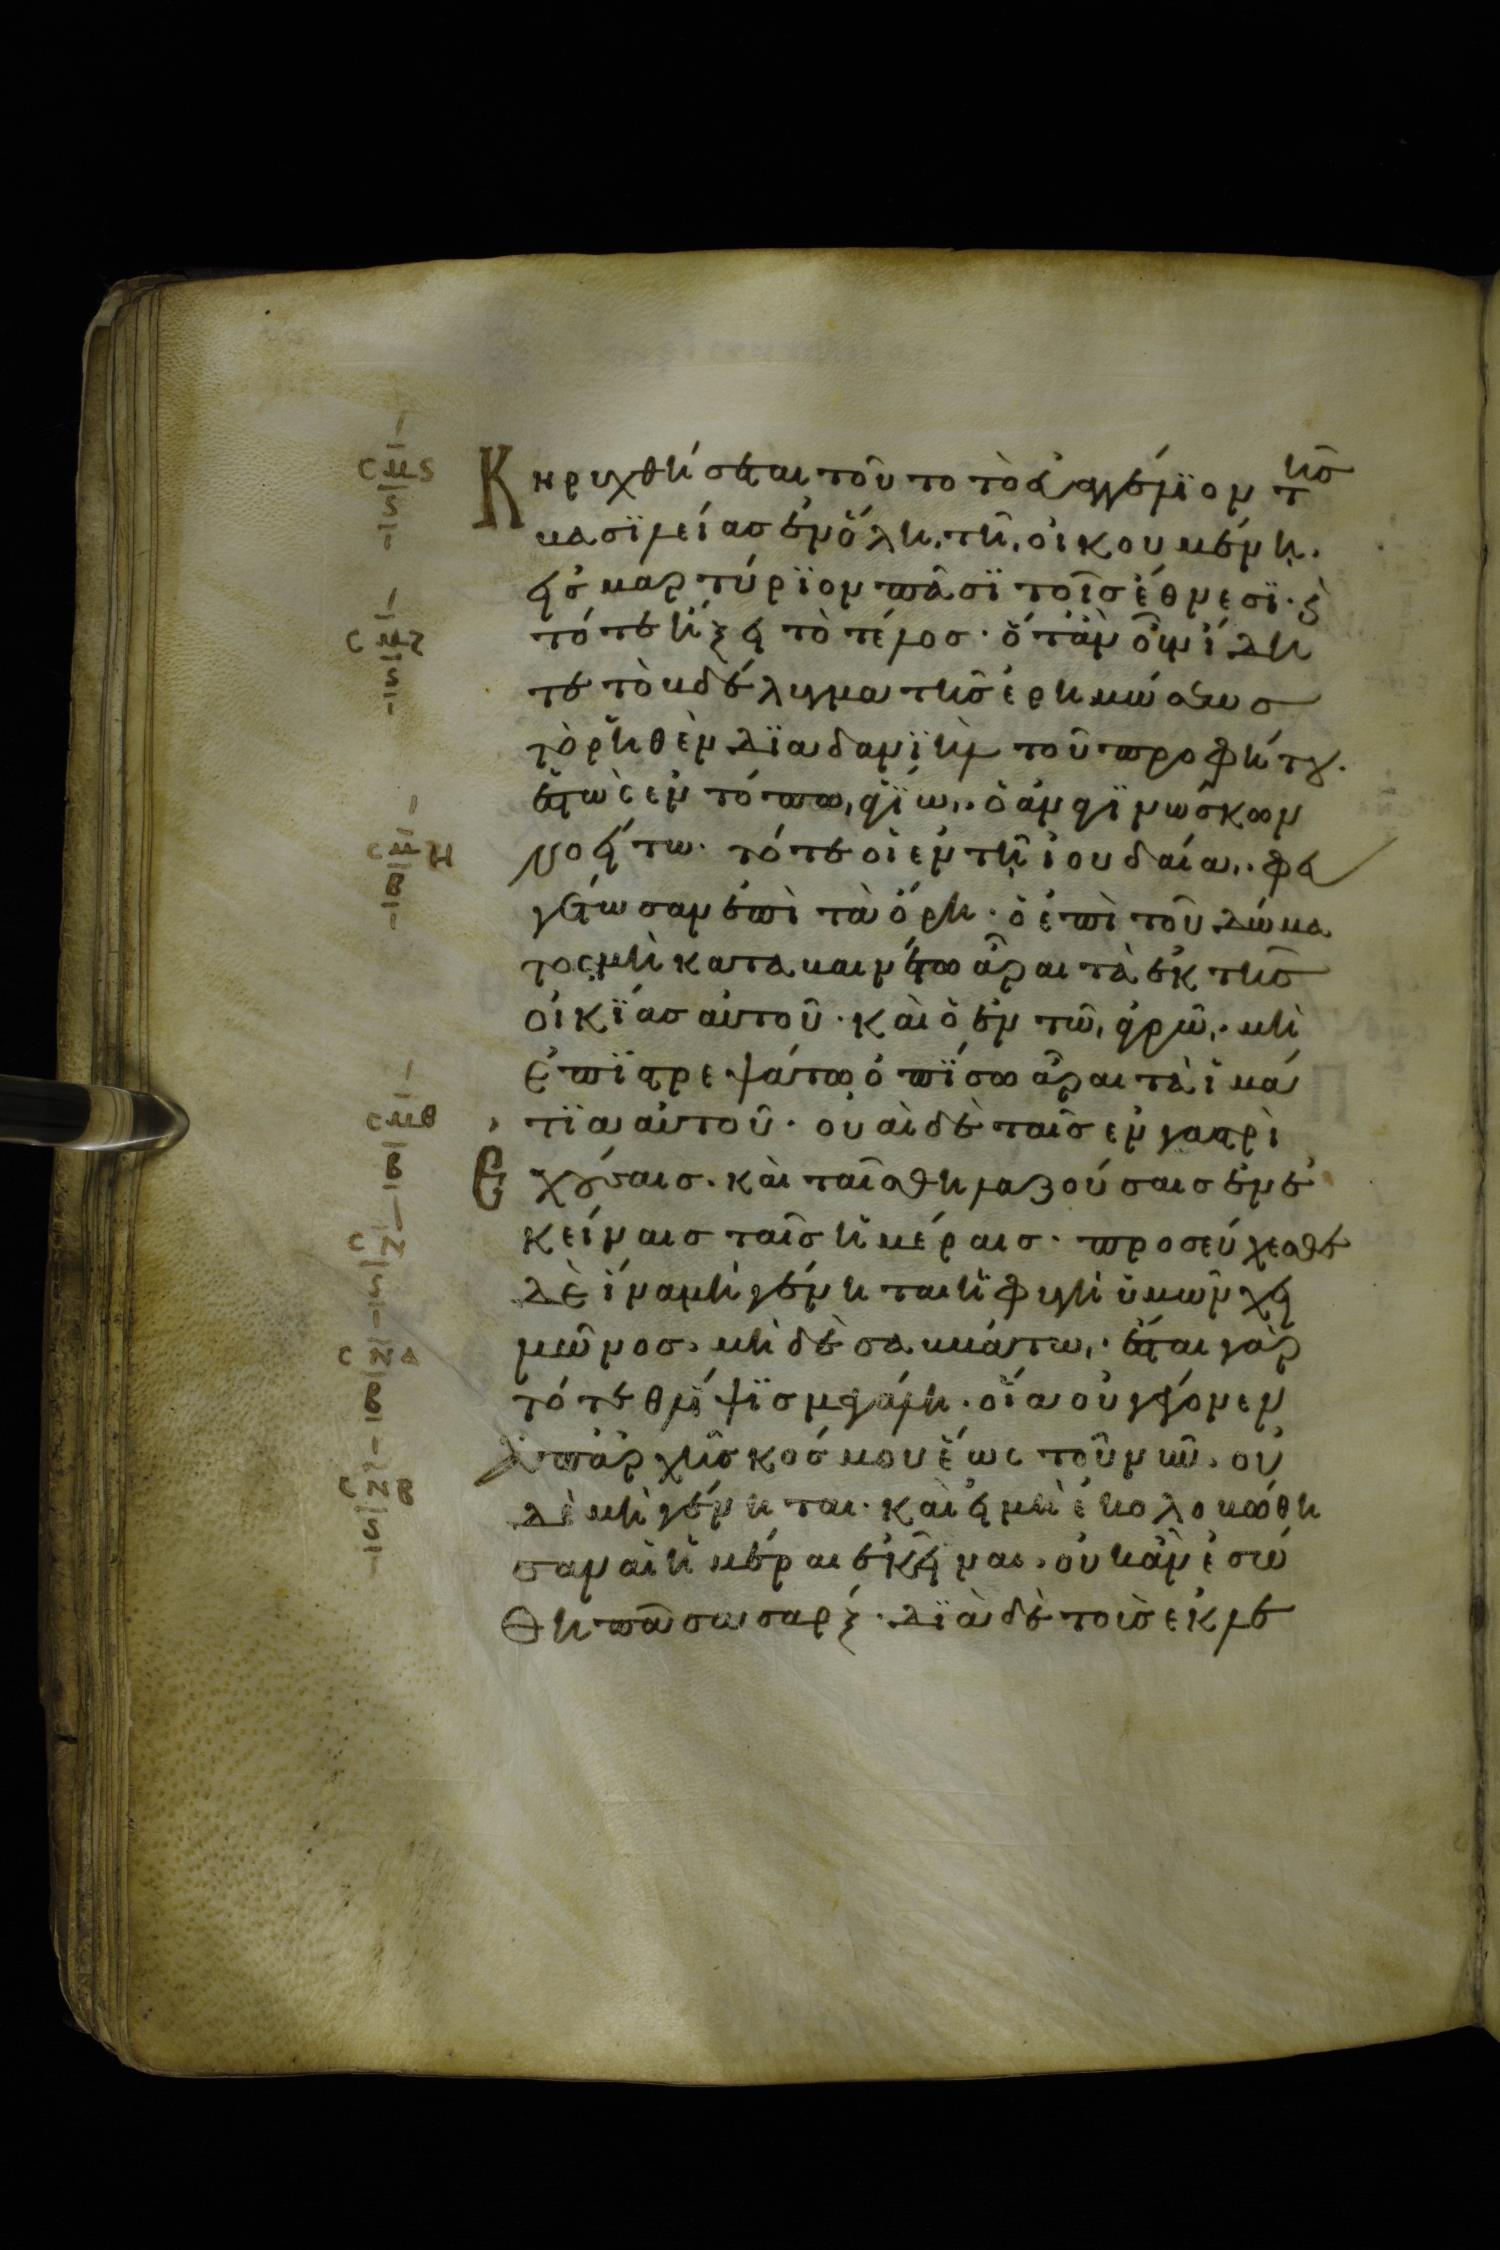 σμς
ς
Κηρυχθήσεται τοῦτο τὸ εὐαγγέλϊον τῆς
βασϊλείας ἐν ὅλη τῆ οἰκουμένη.
εἰς μαρτύρϊον πᾶσϊ τοῖς ἔθνεσϊ· ϗ
σμζ
ς
τότε ἥξει τὸ τέλος· ὅταν οὖν ἴδη
τε τὸ βδέλυγμα τῆς ἐρημώσεως
τὸ ῥηθὲν δϊα δανϊὴλ τοῦ προφήτου.
ἑστὼς ἐν τόπω ἁγϊω· ὁ ἀναγϊνώσκων
σμη
β
νοείτω· τότε οἱ ἐν τῆ ἰουδαία· φευ
γέτωσαν ἐπὶ τὰ ὄρη· ὁ ἐπὶ τοῦ δώμα
τος μὴ καταβαινέτω ἆραι τὰ ἐκ τῆς
οἰκϊας αὐτοῦ· καὶ ὁ ἐν τῶ ἀγρῶ· μὴ
ἐπϊστρεψάτω ὀπϊσω ἆραι τὰ ἱμά
σμθ
β
τϊα αὐτοῦ· οὐαὶ δὲ ταῖς ἐν γαστρὶ
Ἐχούσαις· καὶ ταῖς θηλαζούσαις ἐν ἐ
σν
ς
κείναις ταῖς ἡμέραις· προσεύχεσθε
δὲ ἵνα μὴ γένηται ἡ φυγὴ ὑμῶν χει
σνα
β
μῶνος· μὴ δὲ σαββάτω· ἔσται γὰρ
τότε θλϊψϊς μεγάλη· οἵα οὐ γέγονεν
ἀπαρχῆς κόσμου ἕως τοῦ νῦν· οὐ
σνβ
ς
δὲ μὴ γένηται· καὶ εἰ μὴ ἐκολοβώθη
σαν αἱ ἡμέραι ἐκεῖναι· οὐκ ἂν ἐσώ
θη πᾶσα σαρξ· δϊὰ δὲ τοὺς ἐκλε